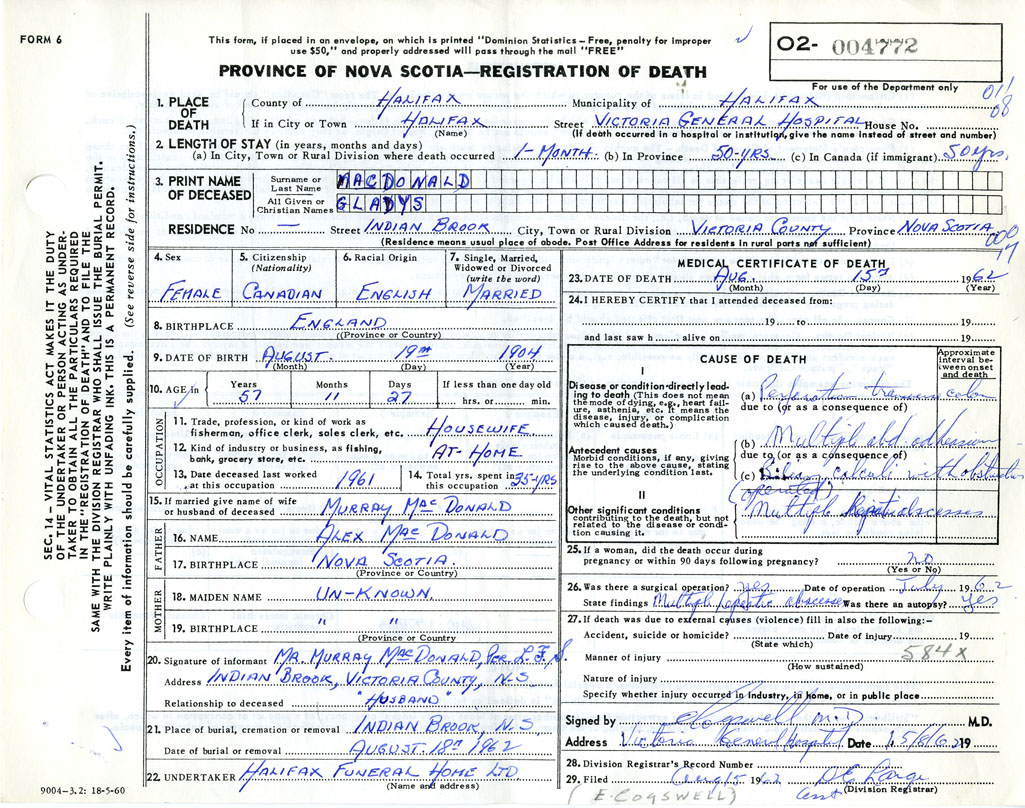 FORM 6
This form, if placed in an envelope, on which is printed "Dominion Statistics – Free, penalty for improper
use $50," and properly addressed will pass through the mail "FREE"
PROVINCE OF NOVA SCOTIA—REGISTRATION OF DEATH
02- 004772
For use of the Department only
01/
08
SEC. 14 – VITAL STATISTICS ACT MAKES IT THE DUTY
OF THE UNDERTAKER OR PERSON ACTING AS UNDER-
TAKER TO OBTAIN ALL THE PARTICULARS REQUIRED
IN THE "REGISTRATION OF DEATH" AND TO FILE THE
SAME WITH THE DIVISION REGISTRAR WHO SHALL ISSUE THE BURIAL PERMIT.
WRITE PLAINLY WITH UNFADING INK. THIS IS A PERMANENT RECORD.
Every item of information should be carefully supplied. (See reverse side for instructions.)
1. PLACE OF DEATH
County of HALIFAX Municipality of HALIFAX
If in City or Town HALIFAX Street VICTORIA GENERAL HOSPITAL House No.
(Name) (If death occurred in a hospital or institution, give the name instead of street and number)
2. LENGTH OF STAY (in years, months and days)
(a) In City, Town or Rural Division where death occurred 1-MONTH. (b) In Province 50-YRS (c) In Canada (if immigrant) 50 yrs.
3. PRINT NAME OF DECEASED
Surname or Last Name MACDONALD
All Given or Christian Names GLADYS
RESIDENCE No — Street INDIAN BROOK City, Town or Rural Division VICTORIA COUNTY Province NOVA SCOTIA
(Residence means usual place of abode. Post Office Address for residents in rural parts not sufficient)
4. Sex FEMALE
5. Citizenship (Nationality) CANADIAN
6. Racial Origin ENGLISH
7. Single, Married, Widowed or Divorced (write the word) MARRIED
8. BIRTHPLACE ENGLAND
(Province or Country)
9. DATE OF BIRTH AUGUST. 19TH 1904
(Month) (Day) (Year)
10. AGE in Years 57 Months 11 Days 27 If less than one day old hrs. or min.
OCCUPATION
11. Trade, profession, or kind of work as fisherman, office clerk, sales clerk, etc. HOUSEWIFE
12. Kind of industry or business, as fishing, bank, grocery store, etc. AT-HOME
13. Date deceased last worked at this occupation 1961
14. Total yrs. spent in this occupation 35-YRS
15. If married give name of wife or husband of deceased MURRAY MACDONALD
FATHER
16. NAME ALEX MACDONALD
17. BIRTHPLACE NOVA SCOTIA
(Province or Country)
MOTHER
18. MAIDEN NAME UN-KNOWN.
19. BIRTHPLACE " "
(Province or Country
20. Signature of informant MR. MURRAY MACDONALD, PER L.F.S.
Address INDIAN BROOK, VICTORIA COUNTY, N.S.
Relationship to deceased "HUSBAND"
21. Place of burial, cremation or removal INDIAN BROOK, N.S
Date of burial or removal AUGUST. 18TH 1962
22. UNDERTAKER HALIFAX FUNERAL HOME LTD.
(Name and address)
9004-3.2: 18-5-60
MEDICAL CERTIFICATE OF DEATH
23. DATE OF DEATH AUG. 15TH 1962
(Month) (Day) (Year)
24. I HEREBY CERTIFY that I attended deceased from:
19 to 19
and last saw h alive on 19
CAUSE OF DEATH
Approximate interval between onset and death
I
Disease or condition directly leading to death (This does not mean the mode of dying, e.g., heart failure, asthenia, etc. It means the disease, injury, or complication which caused death.)
(a) Perforation transverse colon
due to (or as a consequence of)
Antecedent causes
Morbid conditions, if any, giving rise to the above cause, stating the underlying condition last.
(b) Multiple old adhesions
due to (or as a consequence of)
(c) Biliary calculi with obstruction
(operated)
II
Other significant conditions
contributing to the death, but not related to the disease or condition causing it.
Multiple hepatic abscesses
25. If a woman, did the death occur during pregnancy or within 90 days following pregnancy? no
(Yes or No)
26. Was there a surgical operation? yes Date of operation July 1962
State findings Multiple hepatic abscesses Was there an autopsy? yes
27. If death was due to external causes (violence) fill in also the following:–
Accident, suicide or homicide? Date of injury 19
(State which)
584X
Manner of injury
(How sustained)
Nature of injury
Specify whether injury occurred in industry, in home, or in public place
Signed by E Cogswell M.D. M.D.
Address Victoria General Hospital Date 15/8/62 19
28. Division Registrar's Record Number
29. Filed Aug 15 1962
(Division Registrar)
(E. COGSWELL)